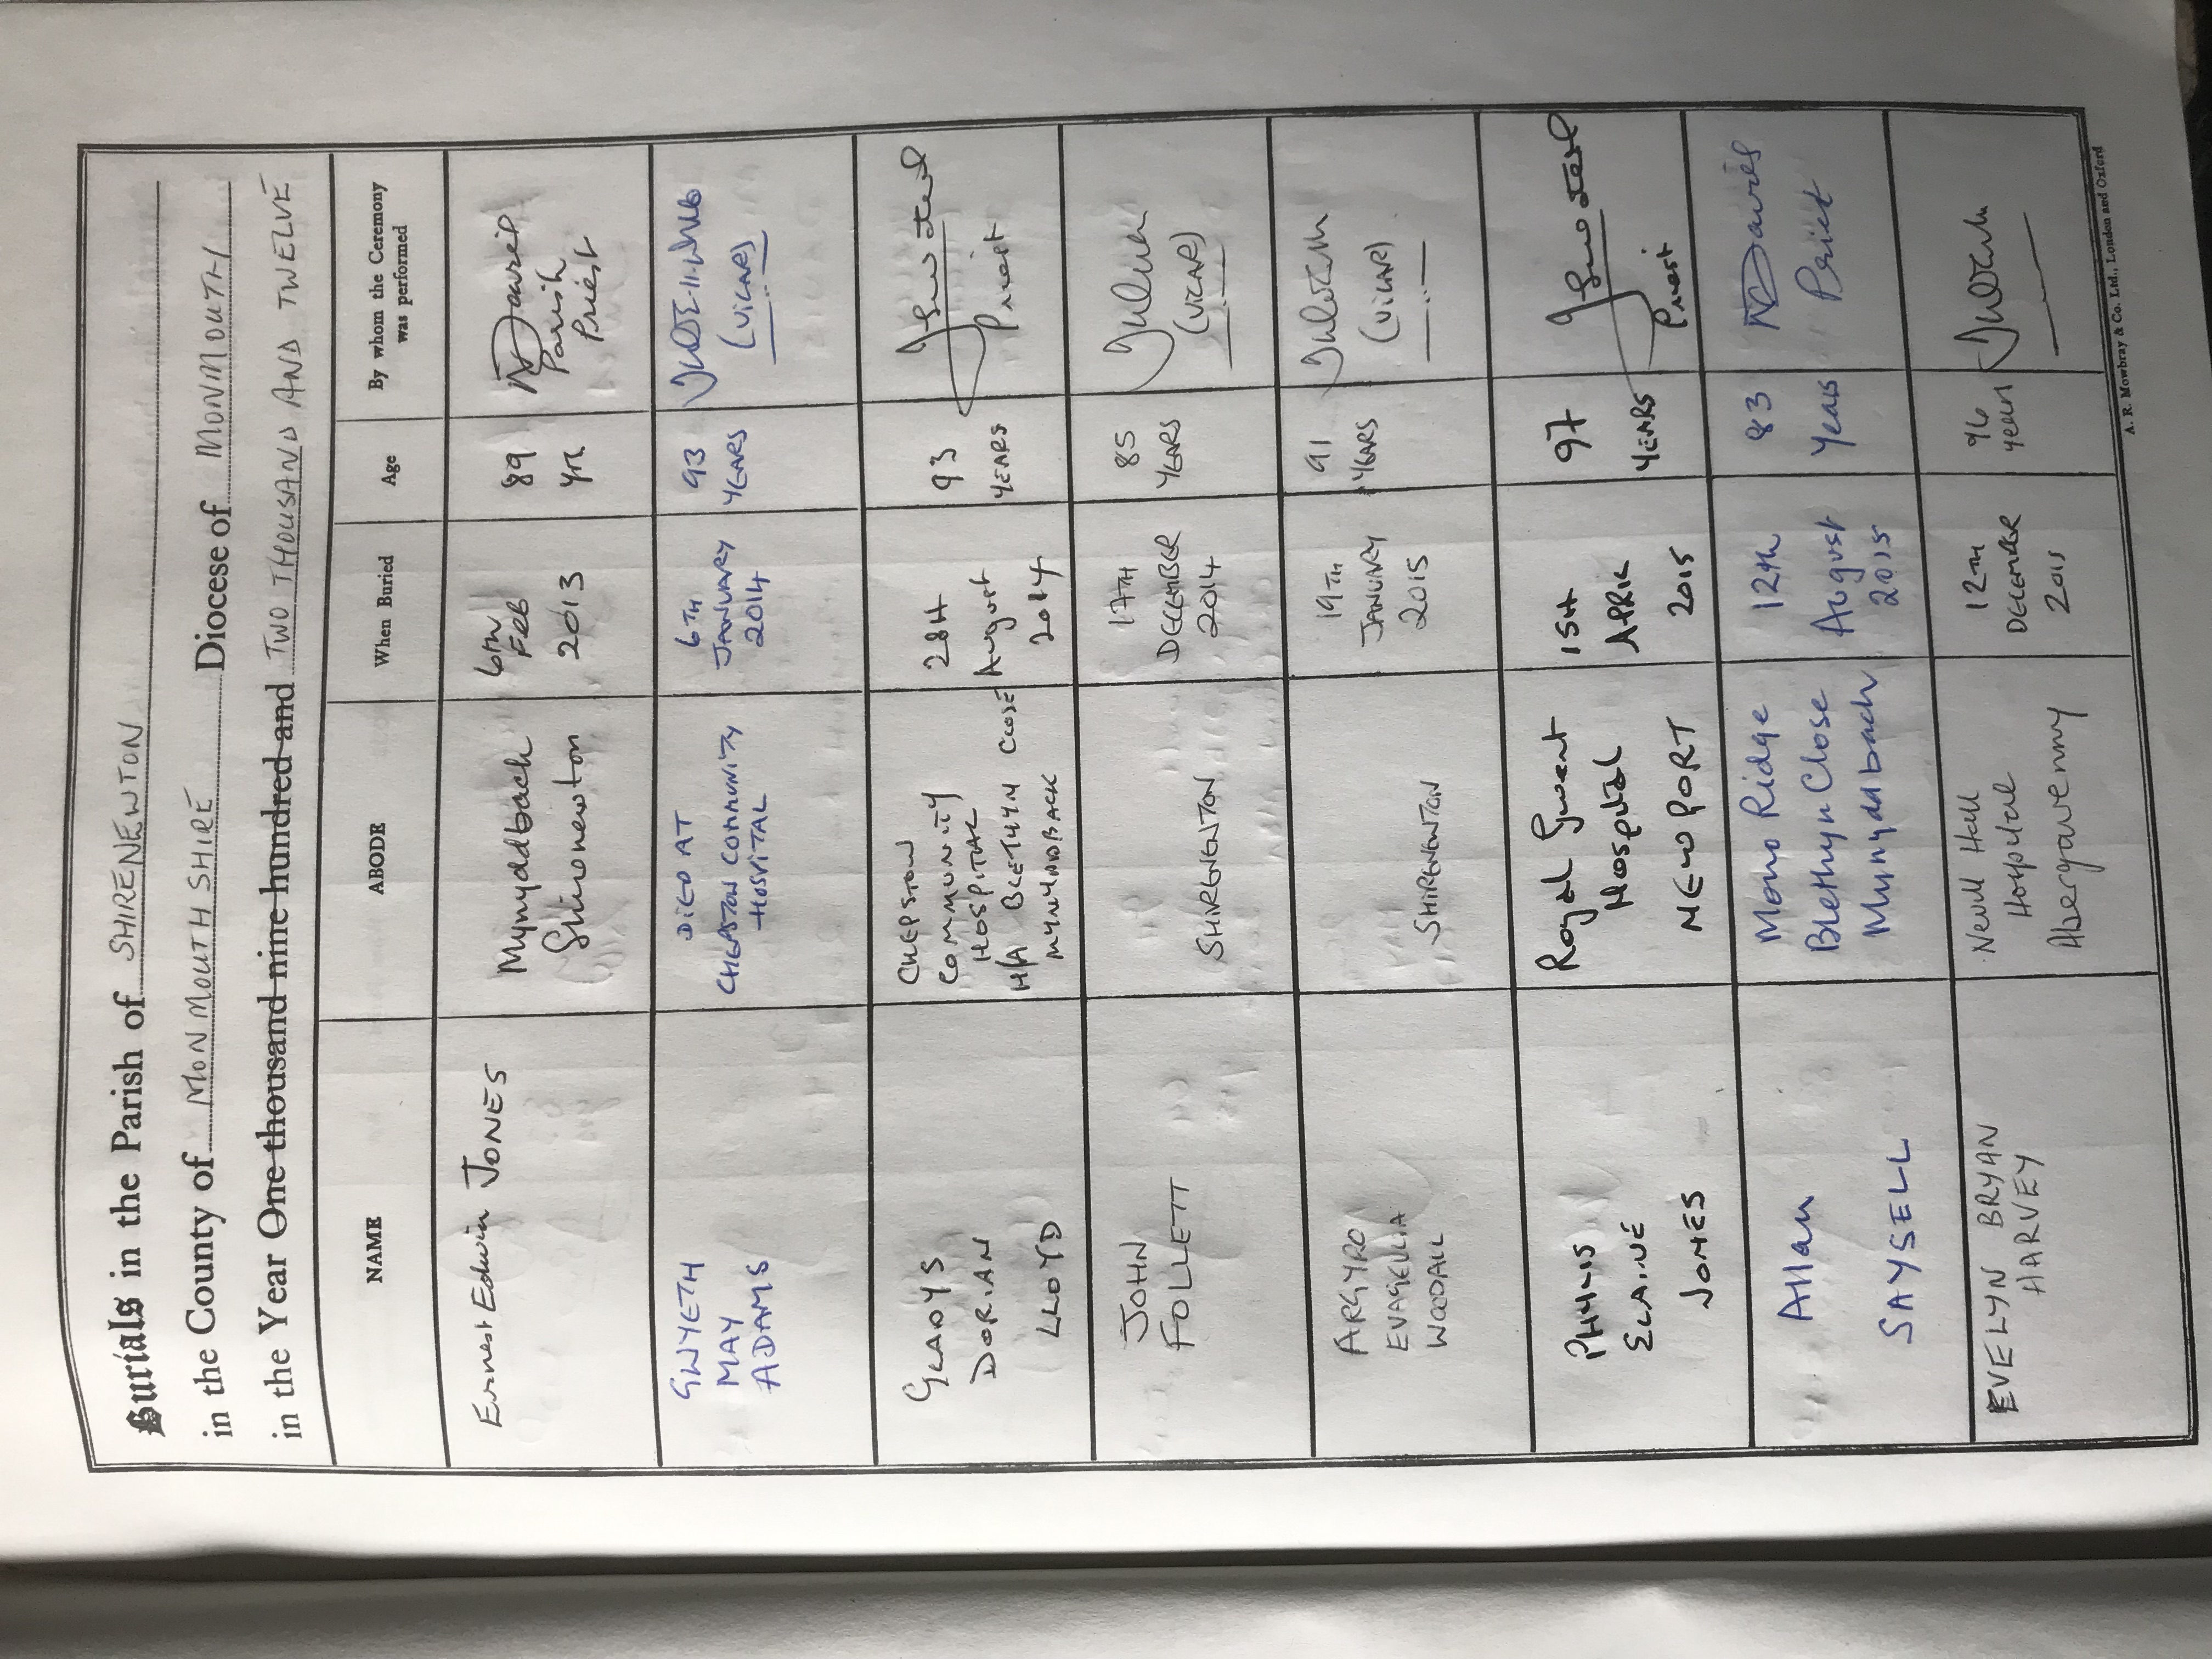 Burials in the Parish of SHIRENEWTON
in the County of MONMOUTHSHIRE Diocese of MONMOUTH
in the Year One thousand nine hundred and TWO THOUSAND AND TWELVE
NAME
ABODE
When Buried
Age
By whom the Ceremony
was performed
Ernest Edwin JONES
Mynyddbach
Shirenewton
6th
Feb
2013
89
yrs
Davies
Parish
Priest
GWYETH
MAY
ADAMS
DIED AT
CHEPSTOW COMMUNITY
HOSPITAL
6TH
JANUARY
2014
93
YEARS
(VICAR)
GLADYS
DORIAN
LLOYD
CHEPSTOW
COMMUNITY
HOSPITAL
H/A BLETHYN CLOSE
MYNYDDBACK
28th
August
2014
93
YEARS
Priest
JOHN
FOLLETT
SHIRENEWTON
17TH
DECEMBER
2014
85
YEARS
(VICAR)
ARGYRO
EVAGELIA
WOODALL
SHIRENEWTON
19TH
JANUARY
2015
91
YEARS
(VICAR)
PHYLIS
ELAINE
JONES
Royal Gwent
Hospital
NEWPORT
15th
APRIL
2015
97
YEARS
Priest
Allan
SAYSELL
Mono Ridge
Blethyn Close
Mynyddbach
12th
August
2015
83
Years
Davies
Priest
EVELYN BRYAN
HARVEY
Nevill Hall
Hospital
Abergavenny
12TH
DECEMBER
2015
96
years
A. R. Mowbray & Co. Ltd., London and Oxford